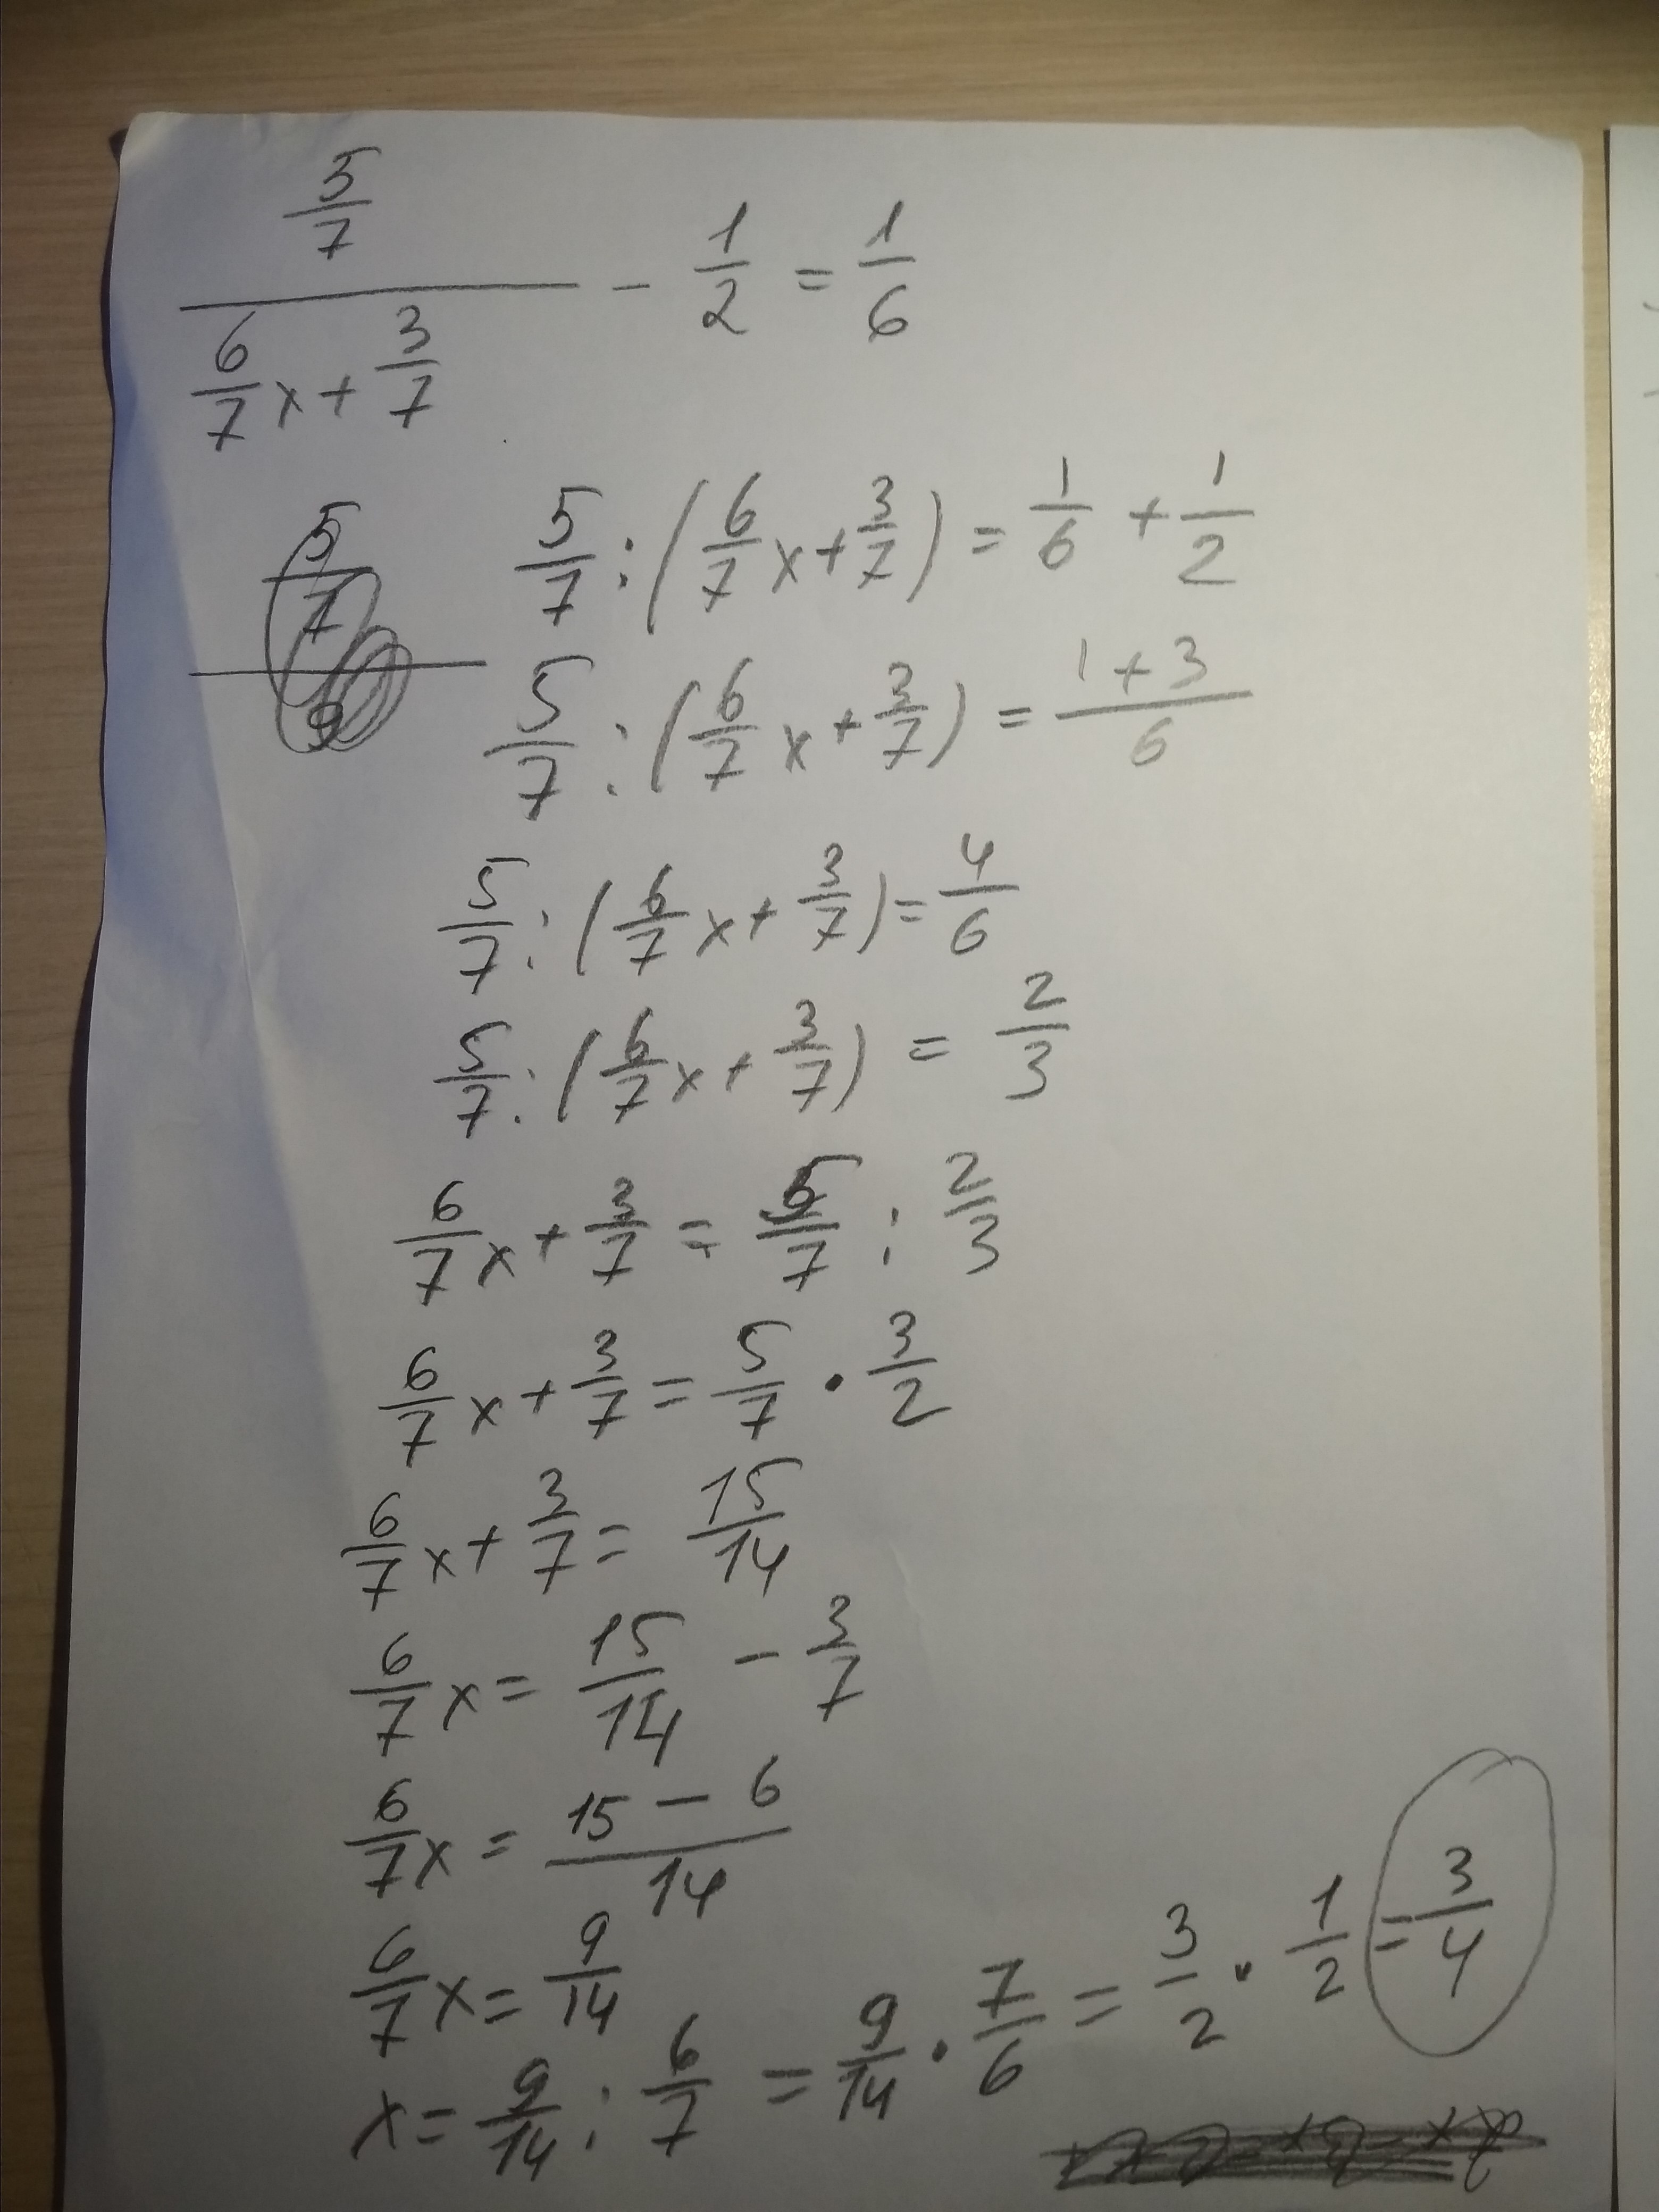 (5/7)/(6/7 x + 3/7) - 1/2 = 1/6
5/7 : (6/7 x + 3/7) = 1/6 + 1/2
5/7
5/7 : (6/7 x + 3/7) = (1 + 3)/6
5/7 : (6/7 x + 3/7) = 4/6
5/7 : (6/7 x + 3/7) = 2/3
6/7 x + 3/7 = 5/7 : 2/3
6/7 x + 3/7 = 5/7 · 3/2
6/7 x + 3/7 = 15/14
6/7 x = 15/14 - 3/7
6/7 x = (15 - 6)/14
6/7 x = 9/14
x = 9/14 : 6/7 = 9/14 · 7/6 = 3/2 · 1/2 = 3/4